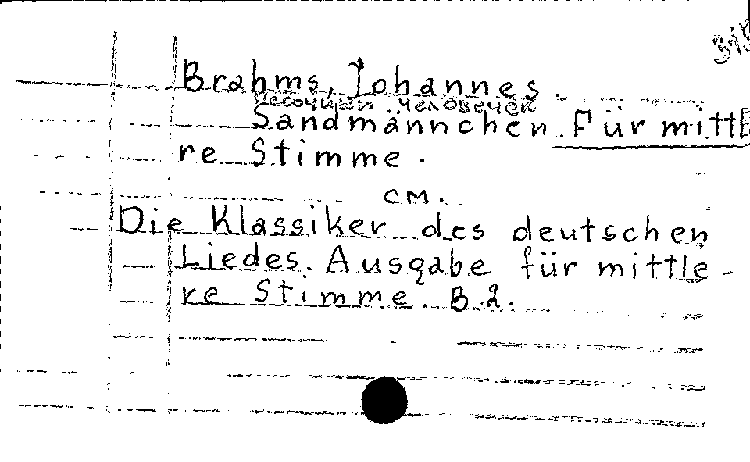 Brahms, Johannes.
Песочный человечек
Sandmännchen. Für mittl
re Stimme.
см.
Die Klassiker des deutschen
Liedes. Ausgabe für mittle-
re Stimme. B.2.